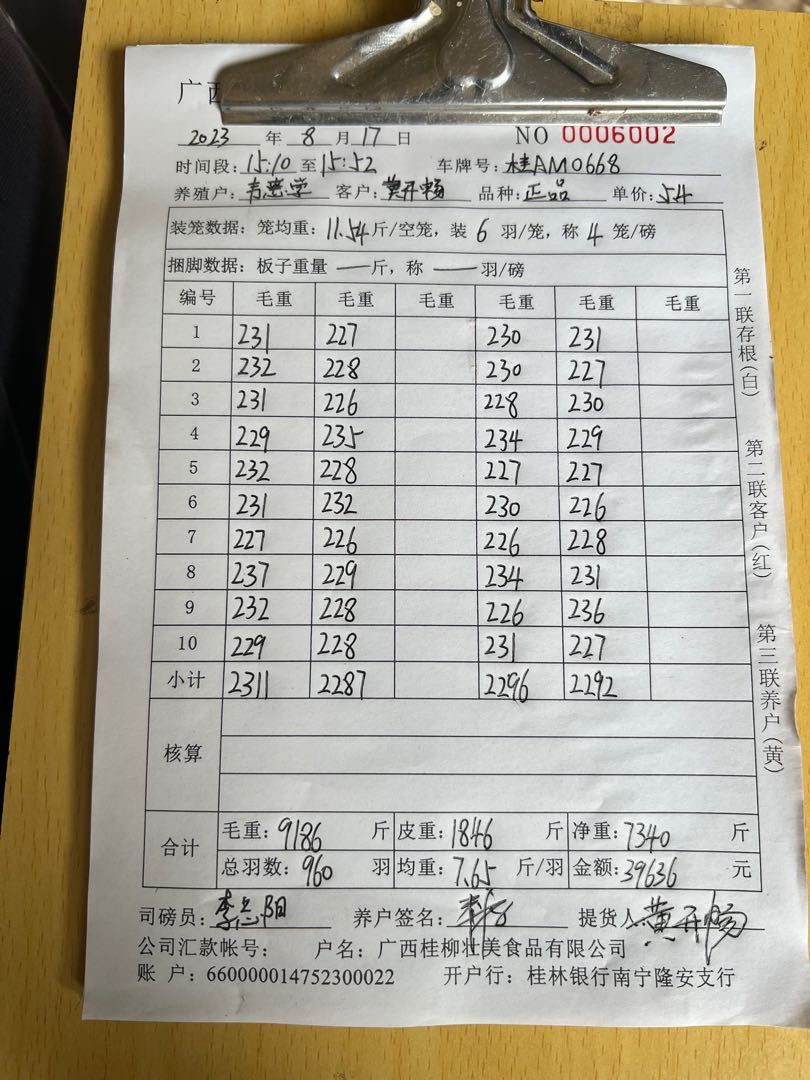 广西
2023 年 8 月 17 日 NO 0006002
时间段: 15:10 至 15:52 车牌号: 桂AM0668
养殖户: 韦 学 客户: 黄开畅 品种: 正品 单价: 54
装笼数据: 笼均重: 11.54 斤/空笼, 装 6 羽/笼, 称 4 笼/磅
捆脚数据: 板子重量 — 斤, 称 — 羽/磅
编号 毛重 毛重 毛重 毛重 毛重 毛重
1 231 227 230 231
2 232 228 230 227
3 231 226 228 230
4 229 235 234 229
5 232 228 227 227
6 231 232 230 226
7 227 226 226 228
8 237 229 234 231
9 232 228 226 236
10 229 228 231 227
小计 2311 2287 2296 2292
核算
合计 毛重: 9186 斤 皮重: 1846 斤 净重: 7340 斤
总羽数: 960 羽 均重: 7.65 斤/羽 金额: 39636 元
司磅员: 李 阳 养户签名: 提货人: 黄开畅
公司汇款帐号: 户名: 广西桂柳壮美食品有限公司
账 户: 660000014752300022 开户行: 桂林银行南宁隆安支行
第一联存根(白)
第二联客户(红)
第三联养户(黄)